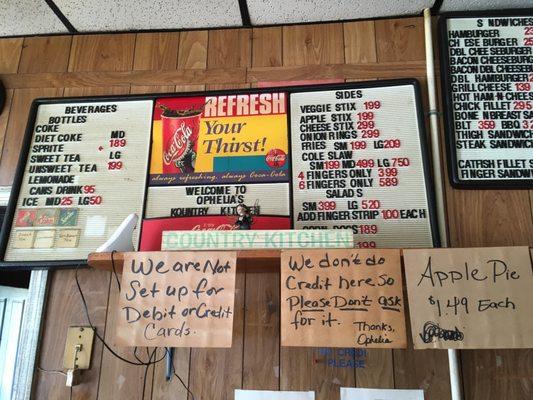 BEVERAGES
BOTTLES
COKE
DIET COKE
SPRITE
SWEET TEA
UNSWEET TEA
LEMONADE
MD
189
LG
199
CANS DRINKS 95
ICE MD25 LG50
REFRESH
Your
Thirst!
Coca-Cola
always refreshing. always Coca-Cola
WELCOME TO
OPHELIA'S
KOUNTRY KITCHEN
COUNTRY KITCHEN
SIDES
VEGGIE STIX 199
APPLE STIX 199
CHEESE STIX 199
ONION RINGS 299
FRIES SM 199 LG 209
COLE SLAW
SM 199 MD 499 LG 750
4 FINGERS ONLY 399
6 FINGERS ONLY 589
SALADS
SM 309 LG 520
ADD FINGER STRIP 100 EACH
199
SANDWICHES
HAMBURGER
CHEESE BURGER
DBL CHEESEBURGER
BACON CHEESEBURGER
BACON DBL CHEESE
DBL HAMBURGER
GRILL CHEESE 139
HOT HAM-N CHEESE
CHICK FILLET 295
BONE N BREAST
BLT 359
THIGH SANDWICH
STEAK SANDWICH
CATFISH FILLET
FINGER SANDWICH
We are Not
Set up for
Debit or Credit
Cards.
We don't do
Credit here So
Please Don't ask
for it.
Thanks,
Ophelia
Apple Pie
$1.49 Each
NO CREDIT
PLEASE